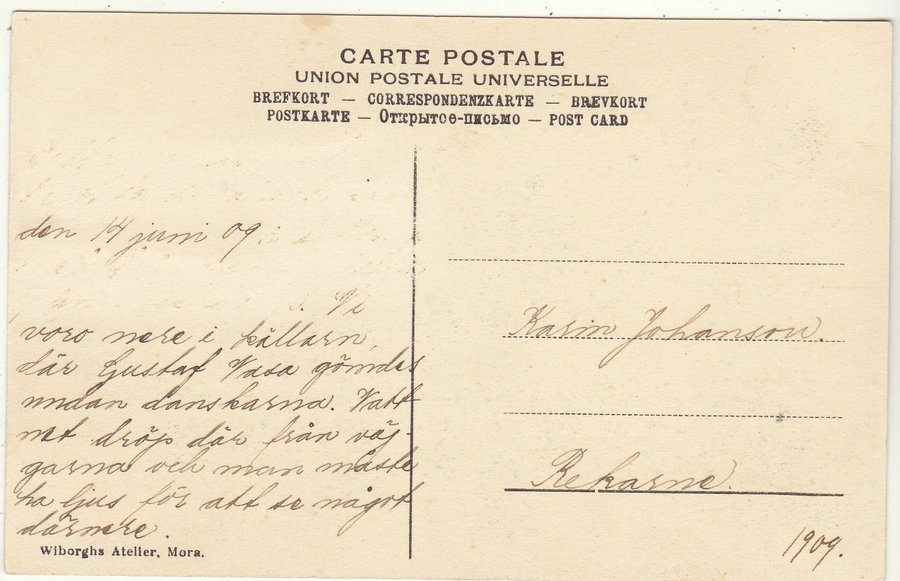 CARTE POSTALE
UNION POSTALE UNIVERSELLE
BREFKORT — CORRESPONDENZKARTE — BREVKORT
POSTKARTE — Открытое-письмо — POST CARD
den 14 juni 09.
Vi
voro nere i källarn,
där Gustaf Vasa gömdes
undan danskarna. Vatt-
net dröp där från väg-
garna och man måste
ha ljus för att se något
därnere.
Wiborghs Atelier, Mora.
Karin Johanson.
Rekarne.
1909.